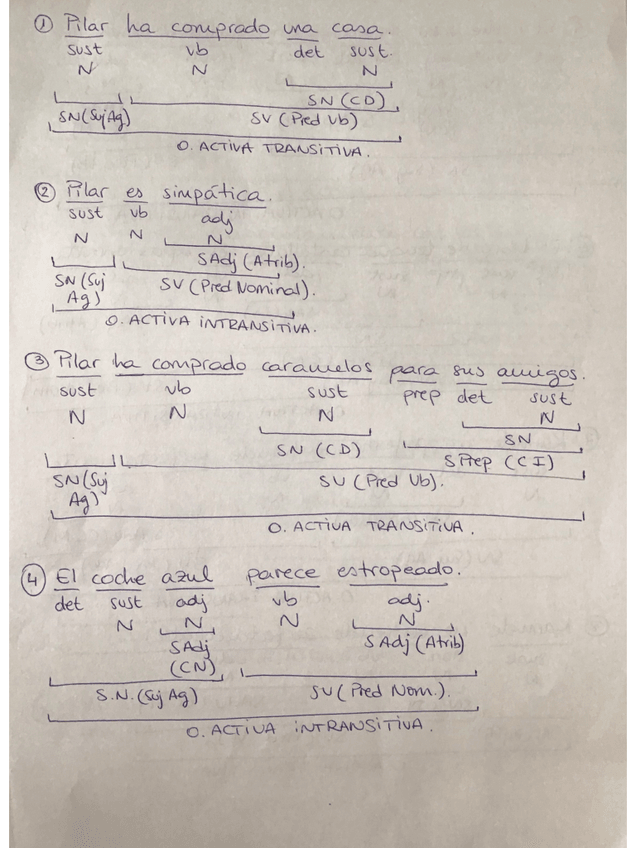 ① Pilar ha comprado una casa.
sust vb det sust.
N N N
SN (CD)
SN (Suj Ag) SV (Pred Vb)
O. ACTIVA TRANSITIVA.
② Pilar es simpática.
sust vb adj
N N N
SAdj (Atrib).
SN (Suj SV (Pred Nominal).
Ag)
O. ACTIVA INTRANSITIVA.
③ Pilar ha comprado caramelos para sus amigos.
sust vb sust prep det sust
N N N N
SN (CD) SN
SPrep (CI)
SN (Suj SV (Pred Vb).
Ag)
O. ACTIVA TRANSITIVA.
④ El coche azul parece estropeado.
det sust adj vb adj.
N N N N
SAdj SAdj (Atrib)
(CN)
S.N. (Suj Ag) SV (Pred Nom.).
O. ACTIVA INTRANSITIVA.